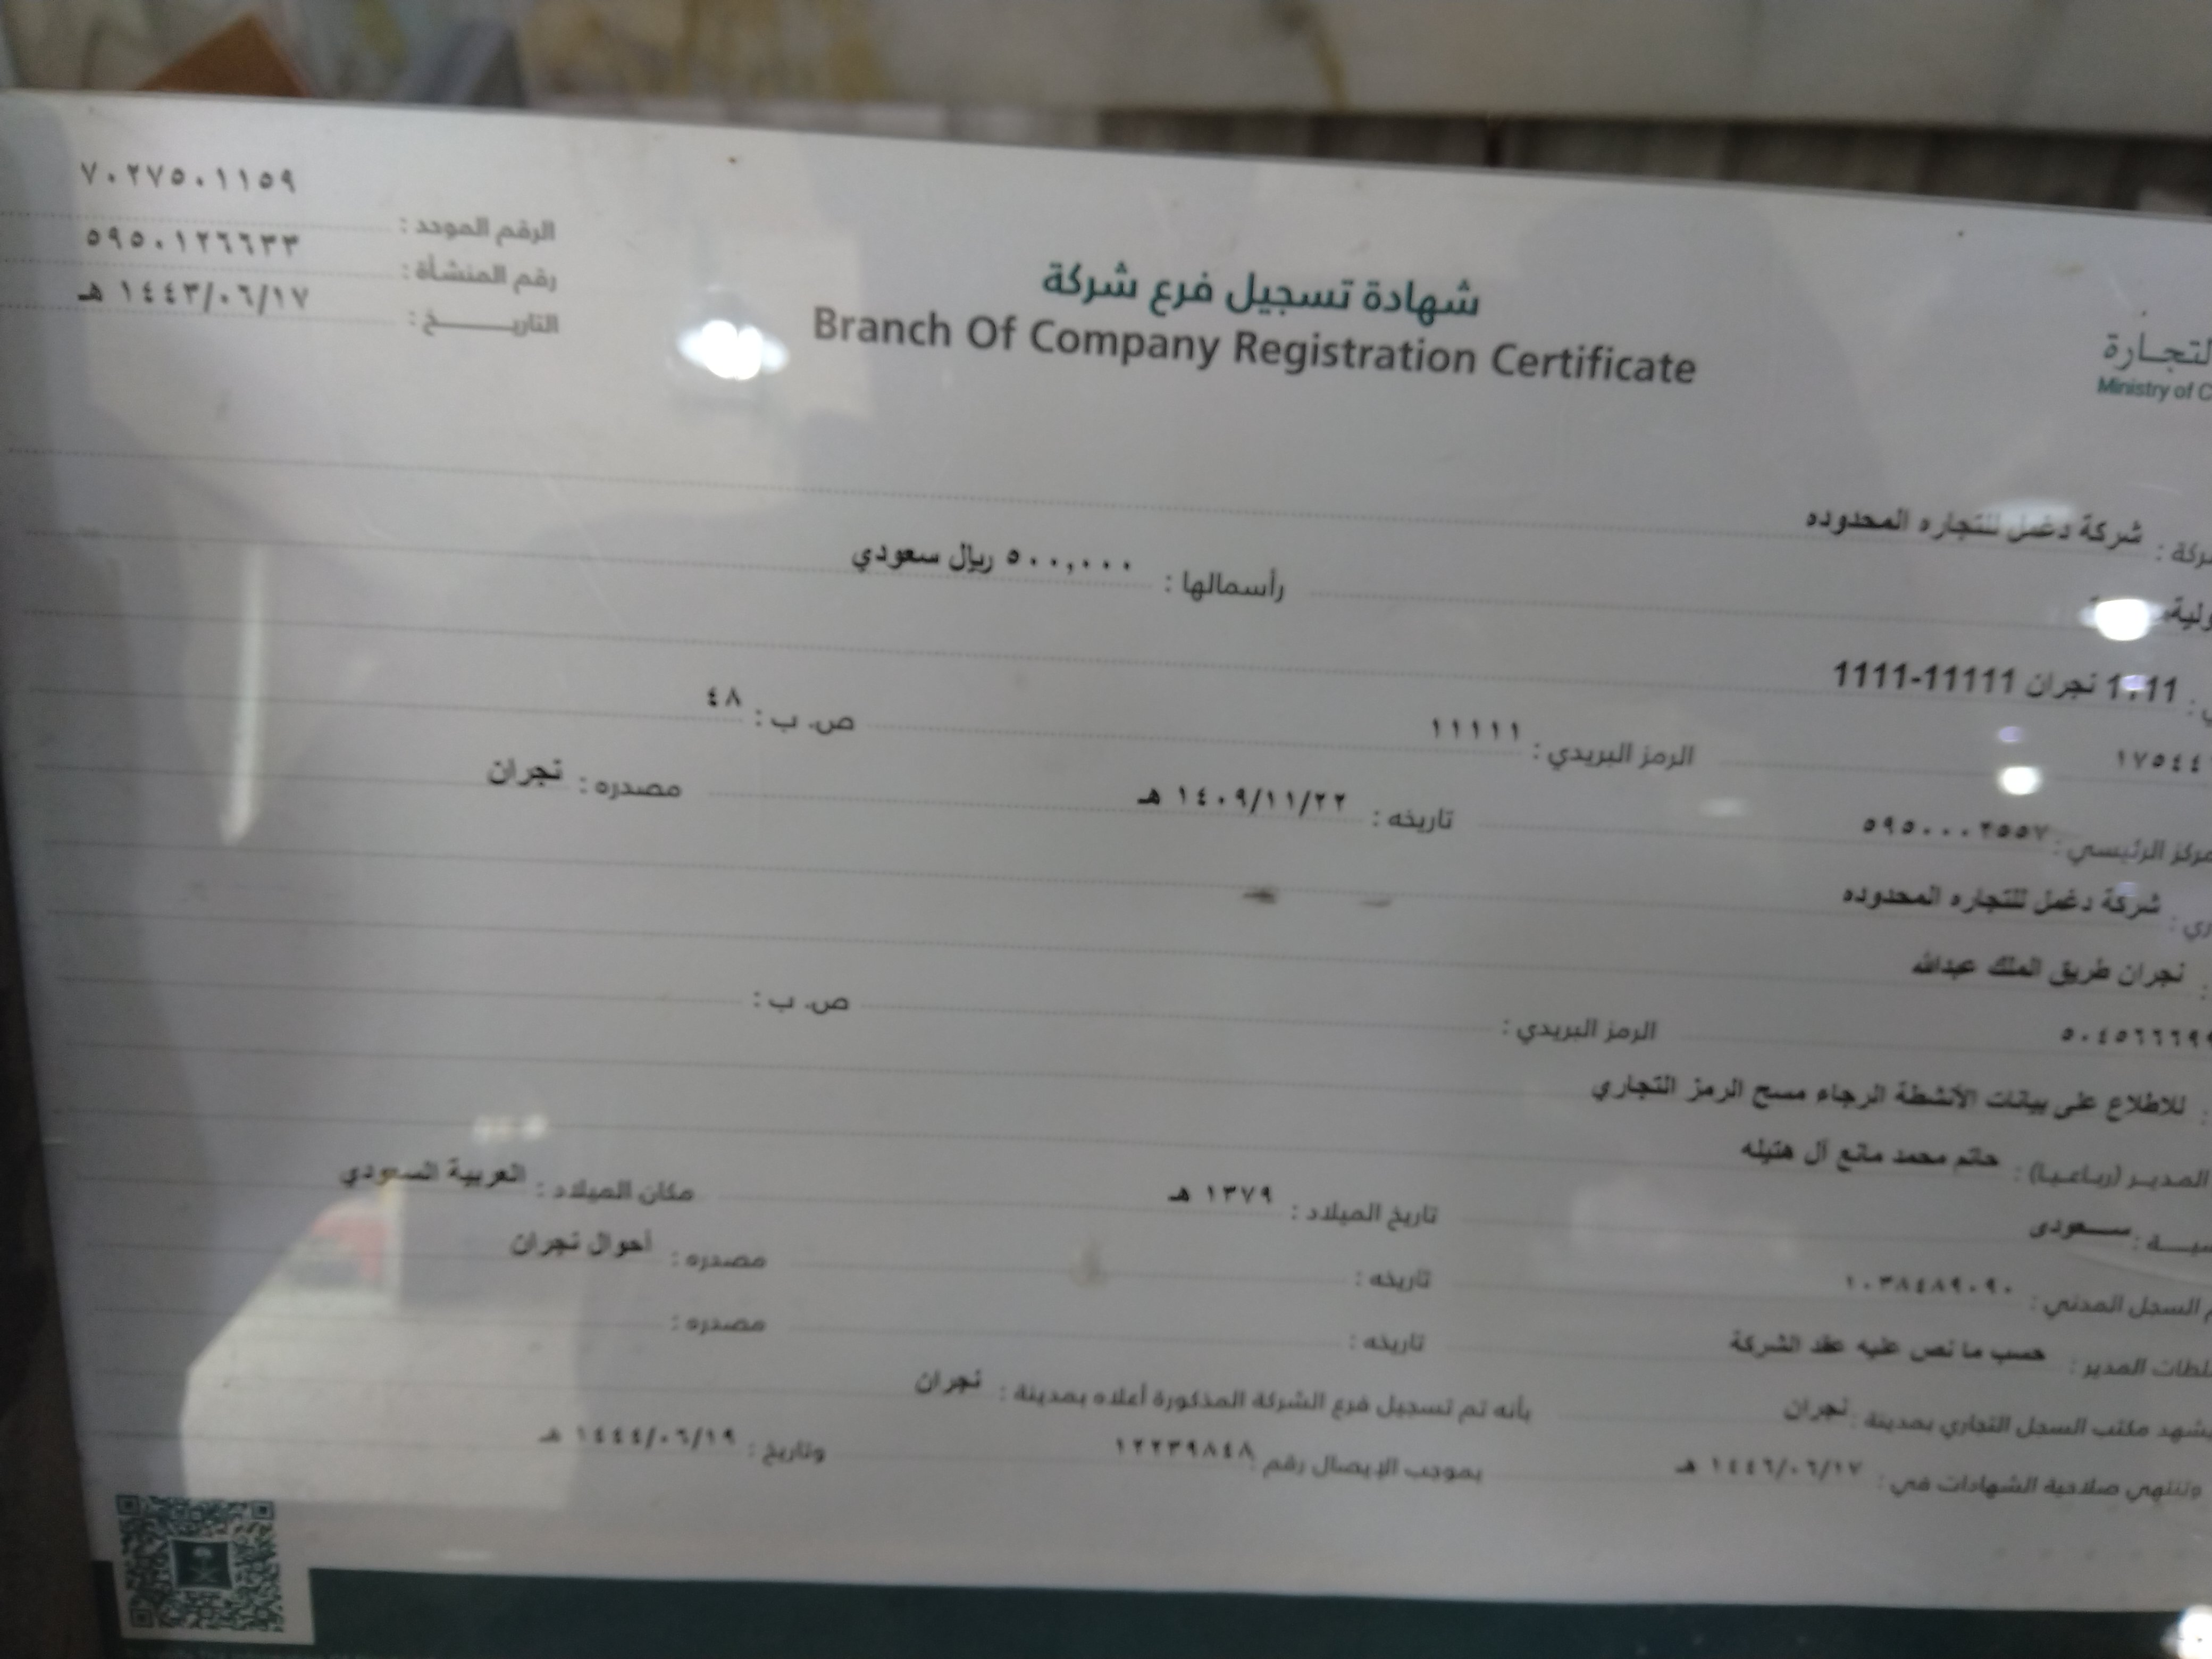 ٧٠٢٧٥٠١١٥٩
الرقم الموحد :
٥٩٥٠١٢٦٦٣٣
رقم المنشأة :
١٤٤٣/٠٦/١٧ هـ
التاريـــــخ :
شهادة تسجيل فرع شركة
Branch Of Company Registration Certificate
Ministry of
شركة دغمل للتجاره المحدوده
رأسمالها : ٥٠٠,٠٠٠ ريال سعودي
نجران 11111-1111
الرمز البريدي : ١١١١١ ص. ب : ٤٨
الرئيسي : ٥٩٥٠٠٠٢٥٥٧ تاريخه : ١٤٠٩/١١/٢٢ هـ مصدره : نجران
شركة دغمل للتجاره المحدوده
نجران طريق الملك عبدالله
الرمز البريدي : ص. ب :
للاطلاع على بيانات الأنشطة الرجاء مسح الرمز التجاري
المدير (رباعيا) : حاتم محمد مانع آل هتيله
سعودى تاريخ الميلاد : ١٣٧٩ هـ مكان الميلاد : العربية السعودي
السجل المدني : ١٠٣٨٤٨٩٠٩٠ تاريخه : مصدره : أحوال نجران
المدير : حسب ما نص عليه عقد الشركة تاريخه : مصدره :
يشهد مكتب السجل التجاري بمدينة : نجران بأنه تم تسجيل فرع الشركة المذكورة أعلاه بمدينة : نجران
وتنتهي صلاحية الشهادات في : ١٤٤٦/٠٦/١٧ هـ بموجب الإيصال رقم : ١٢٢٣٩٨٤٨ وتاريخ : ١٤٤٤/٠٦/١٩ هـ